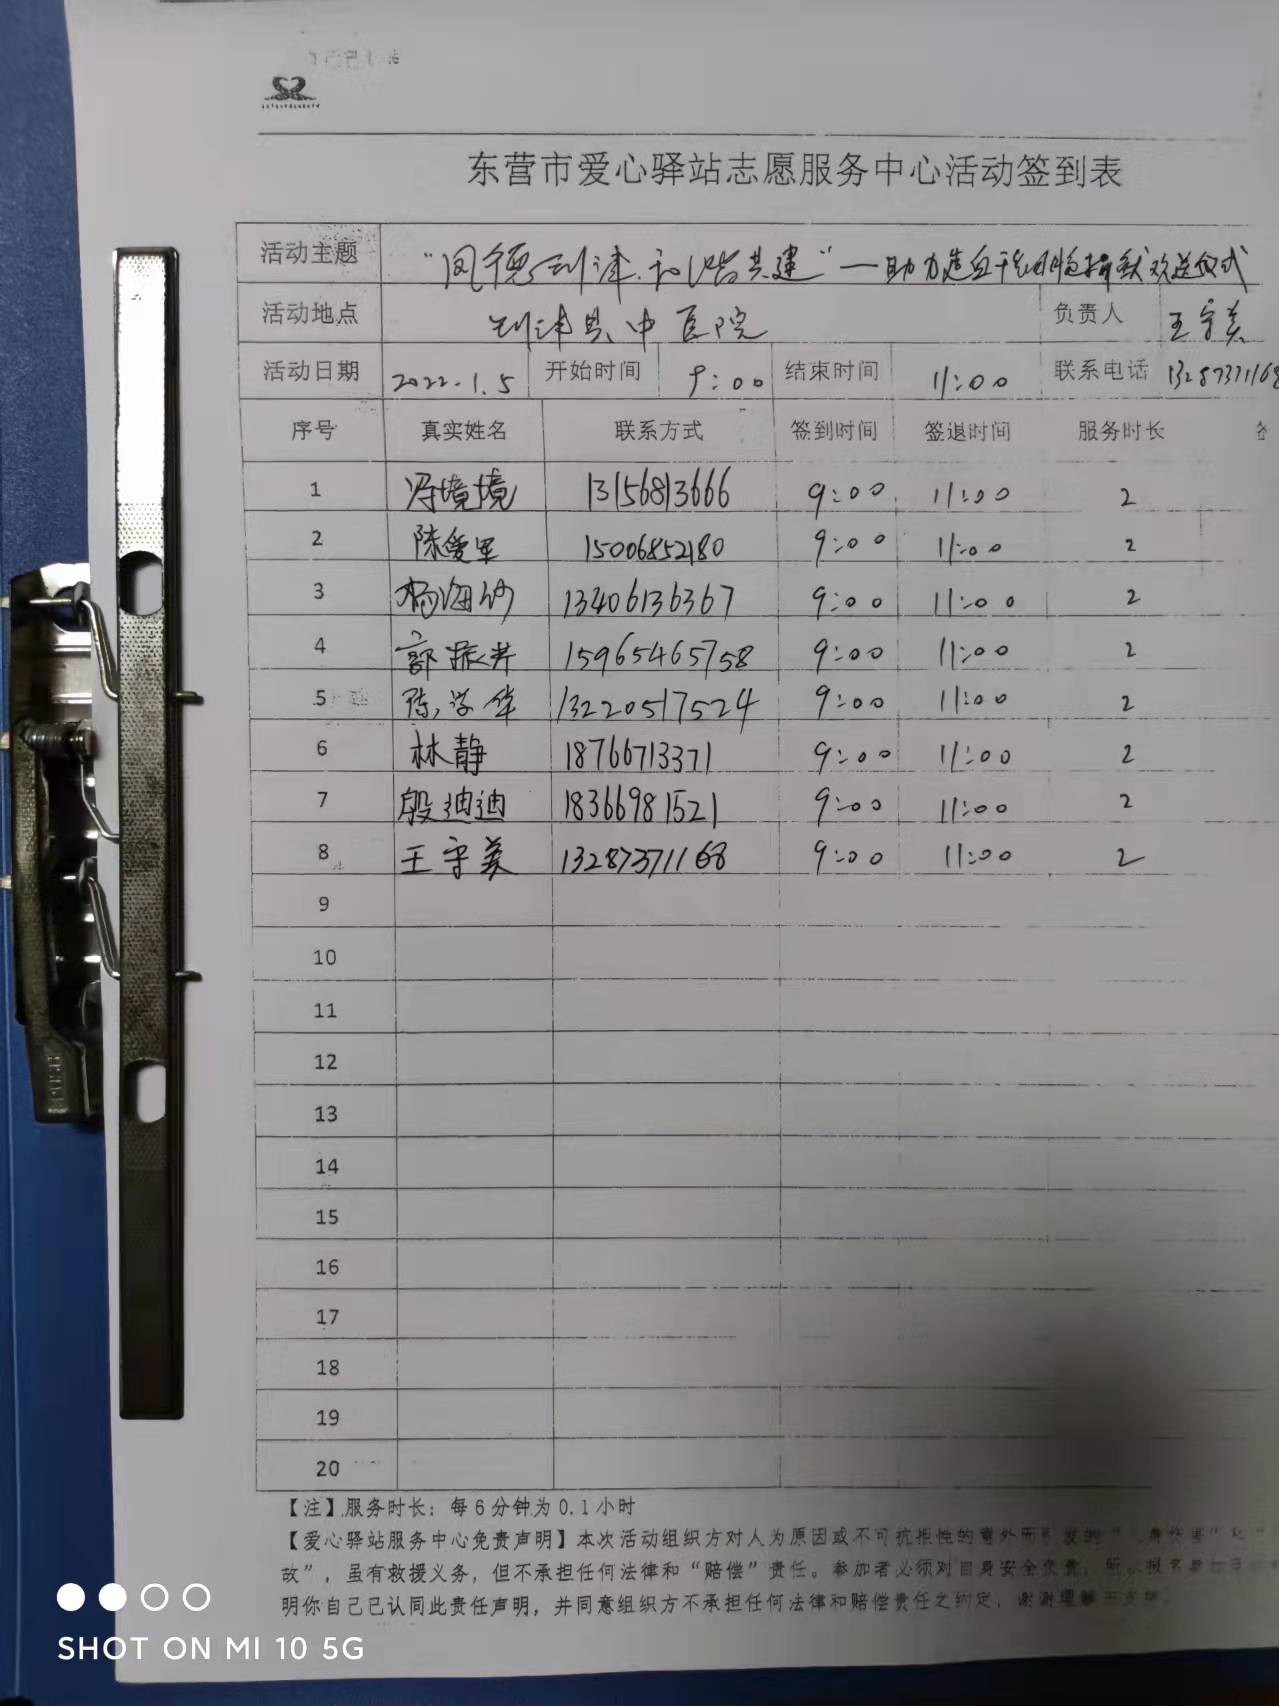 东营市爱心驿站志愿服务中心活动签到表
活动主题 "闵德利津.和谐共建"—助力造血干细胞捐献欢送仪式
活动地点 利津县中医院 负责人 王守美
活动日期 2022.1.5 开始时间 9:00 结束时间 11:00 联系电话 13287371168
序号 真实姓名 联系方式 签到时间 签退时间 服务时长
1 冯境境 13156813666 9:00 11:00 2
2 陈爱军 15006852180 9:00 11:00 2
3 杨海 13406136367 9:00 11:00 2
4 郭振 15965465758 9:00 11:00 2
5 陈学华 13220517524 9:00 11:00 2
6 林静 18766713371 9:00 11:00 2
7 殷迪迪 18366981521 9:00 11:00 2
8 王守美 13287371168 9:00 11:00 2
9
10
11
12
13
14
15
16
17
18
19
20
【注】服务时长：每6分钟为0.1小时
【爱心驿站服务中心免责声明】本次活动组织方对人为原因或不可抗拒性的意外所引发的"人身伤害"
故"，虽有救援义务，但不承担任何法律和"赔偿"责任。参加者必须对自身安全负责，
明你自己已认同此责任声明，并同意组织方不承担任何法律和赔偿责任之约定，谢谢理解
SHOT ON MI 10 5G